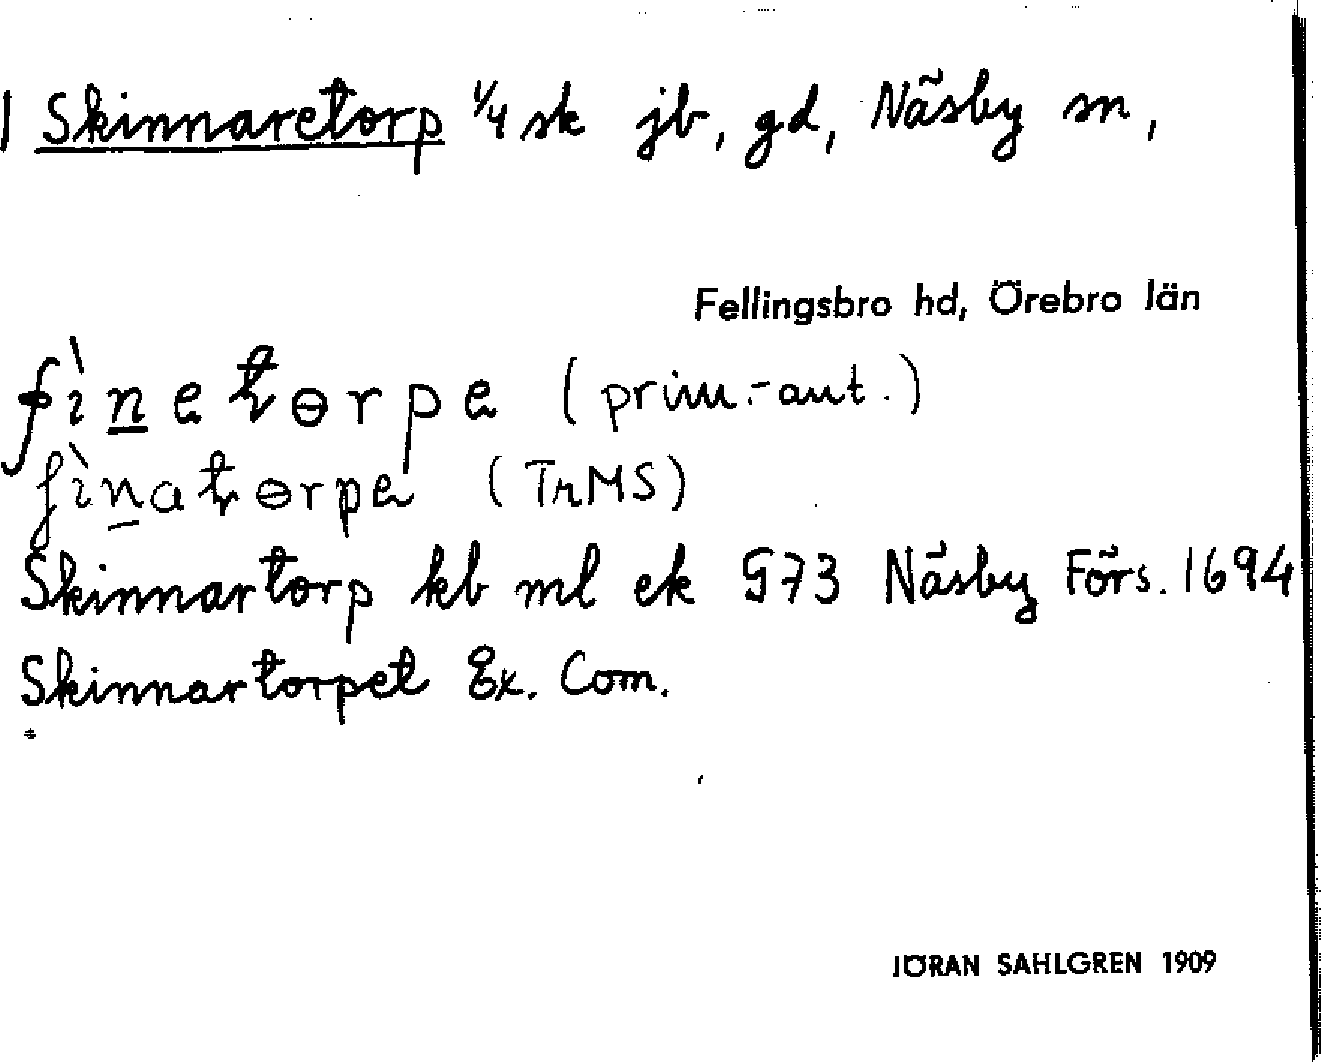 Skinnaretorp ¼ sk jb, gd, Näsby sn,
Fellingsbro hd, Örebro län
(prim.-aut.)
(TrMS)
Skinnartorp kb ml ek § 73 Näsby Förs. 1694
Skinnartorpet Ex. Com.
JÖRAN SAHLGREN 1909